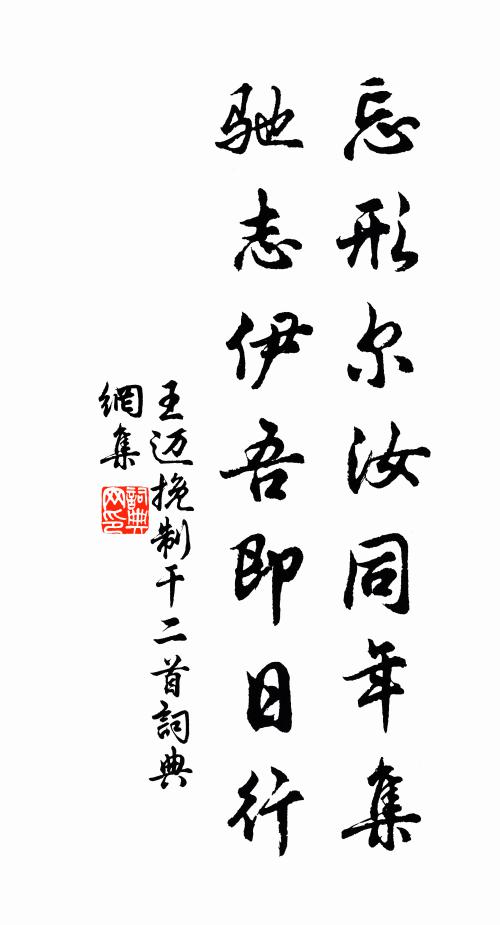 忘形尔汝同年集
驰志伊吾即日行
王迈挽制干二首詞典
網集
詞典
网印